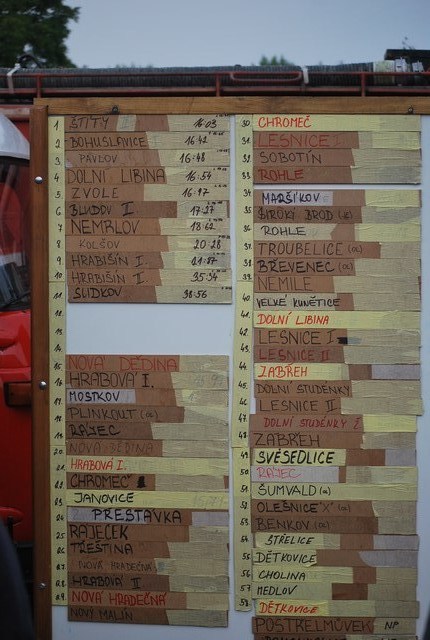 1 ŠTÍTY I 16:03
2 BOHUSLAVICE 16:42
3 PAVLOV 16:48
4 DOLNÍ LIBINA 16:54
5 ZVOLE 16:97
6 BLUDOV I 17:27
7 NEMRLOV 18:62
8 KOLŠOV 20:28
9 HRABIŠÍN I 21:87
10 HRABIŠÍN I 35:34
11 SUDKOV 38:56
15 NOVÁ DĚDINA
16 HRABOVÁ I.
17 MOSTKOV
18 PLINKOUT (OL)
19 RÁJEC
20 NOVÁ DĚDINA
21 HRABOVÁ I.
22 CHROMEČ
23 JANOVICE
24 PŘESTAVKA
25 RÁJEČEK
26 TŘEŠTINA
27 NOVÁ HRADEČNÁ
28 HRABOVÁ II
29 NOVÁ HRADEČNÁ
NOVÝ MALÍN
30 CHROMEČ
31 LESNICE I
32 SOBOTÍN
33 ROHLE
34 MARŠÍKOV
35 ŠIROKÝ BROD
36 ROHLE
37 TROUBELICE (OL)
38 BŘEVENEC (OL)
39 NEMILE
40 VELKÉ KUNĚTICE
41 DOLNÍ LIBINA
42 LESNICE I
43 LESNICE II
44 ZÁBŘEH
45 DOLNÍ STUDÉNKY
46 LESNICE II
47 DOLNÍ STUDÉNKY
48 ZÁBŘEH
49 SVÉSEDLICE
50 RÁJEC
51 ŠUMVALD (OL)
52 OLEŠNICE "X" (OL)
53 BENKOV (OL)
54 STŘELICE
55 DĚTKOVICE
56 CHOLINA
57 MEDLOV
58 DĚTKOVICE
POSTŘELMŮVEK NP